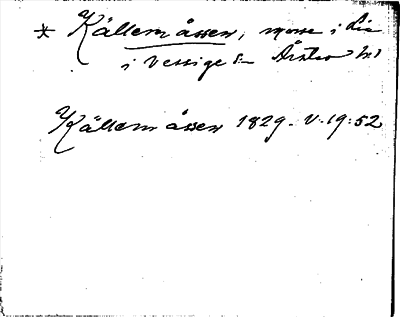 * Källemåssen, mosse i
i Vessige sn Årstad hd
Källemåssen 1829. V. 19:52